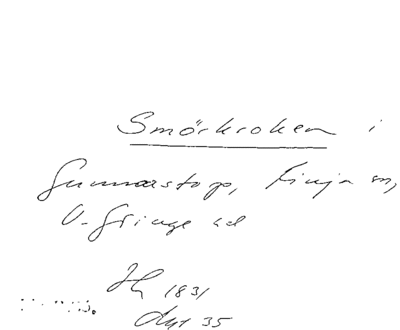 Smörkroken i
Gunnarstorp, Finja sn,
V. Göinge hd
1831
35